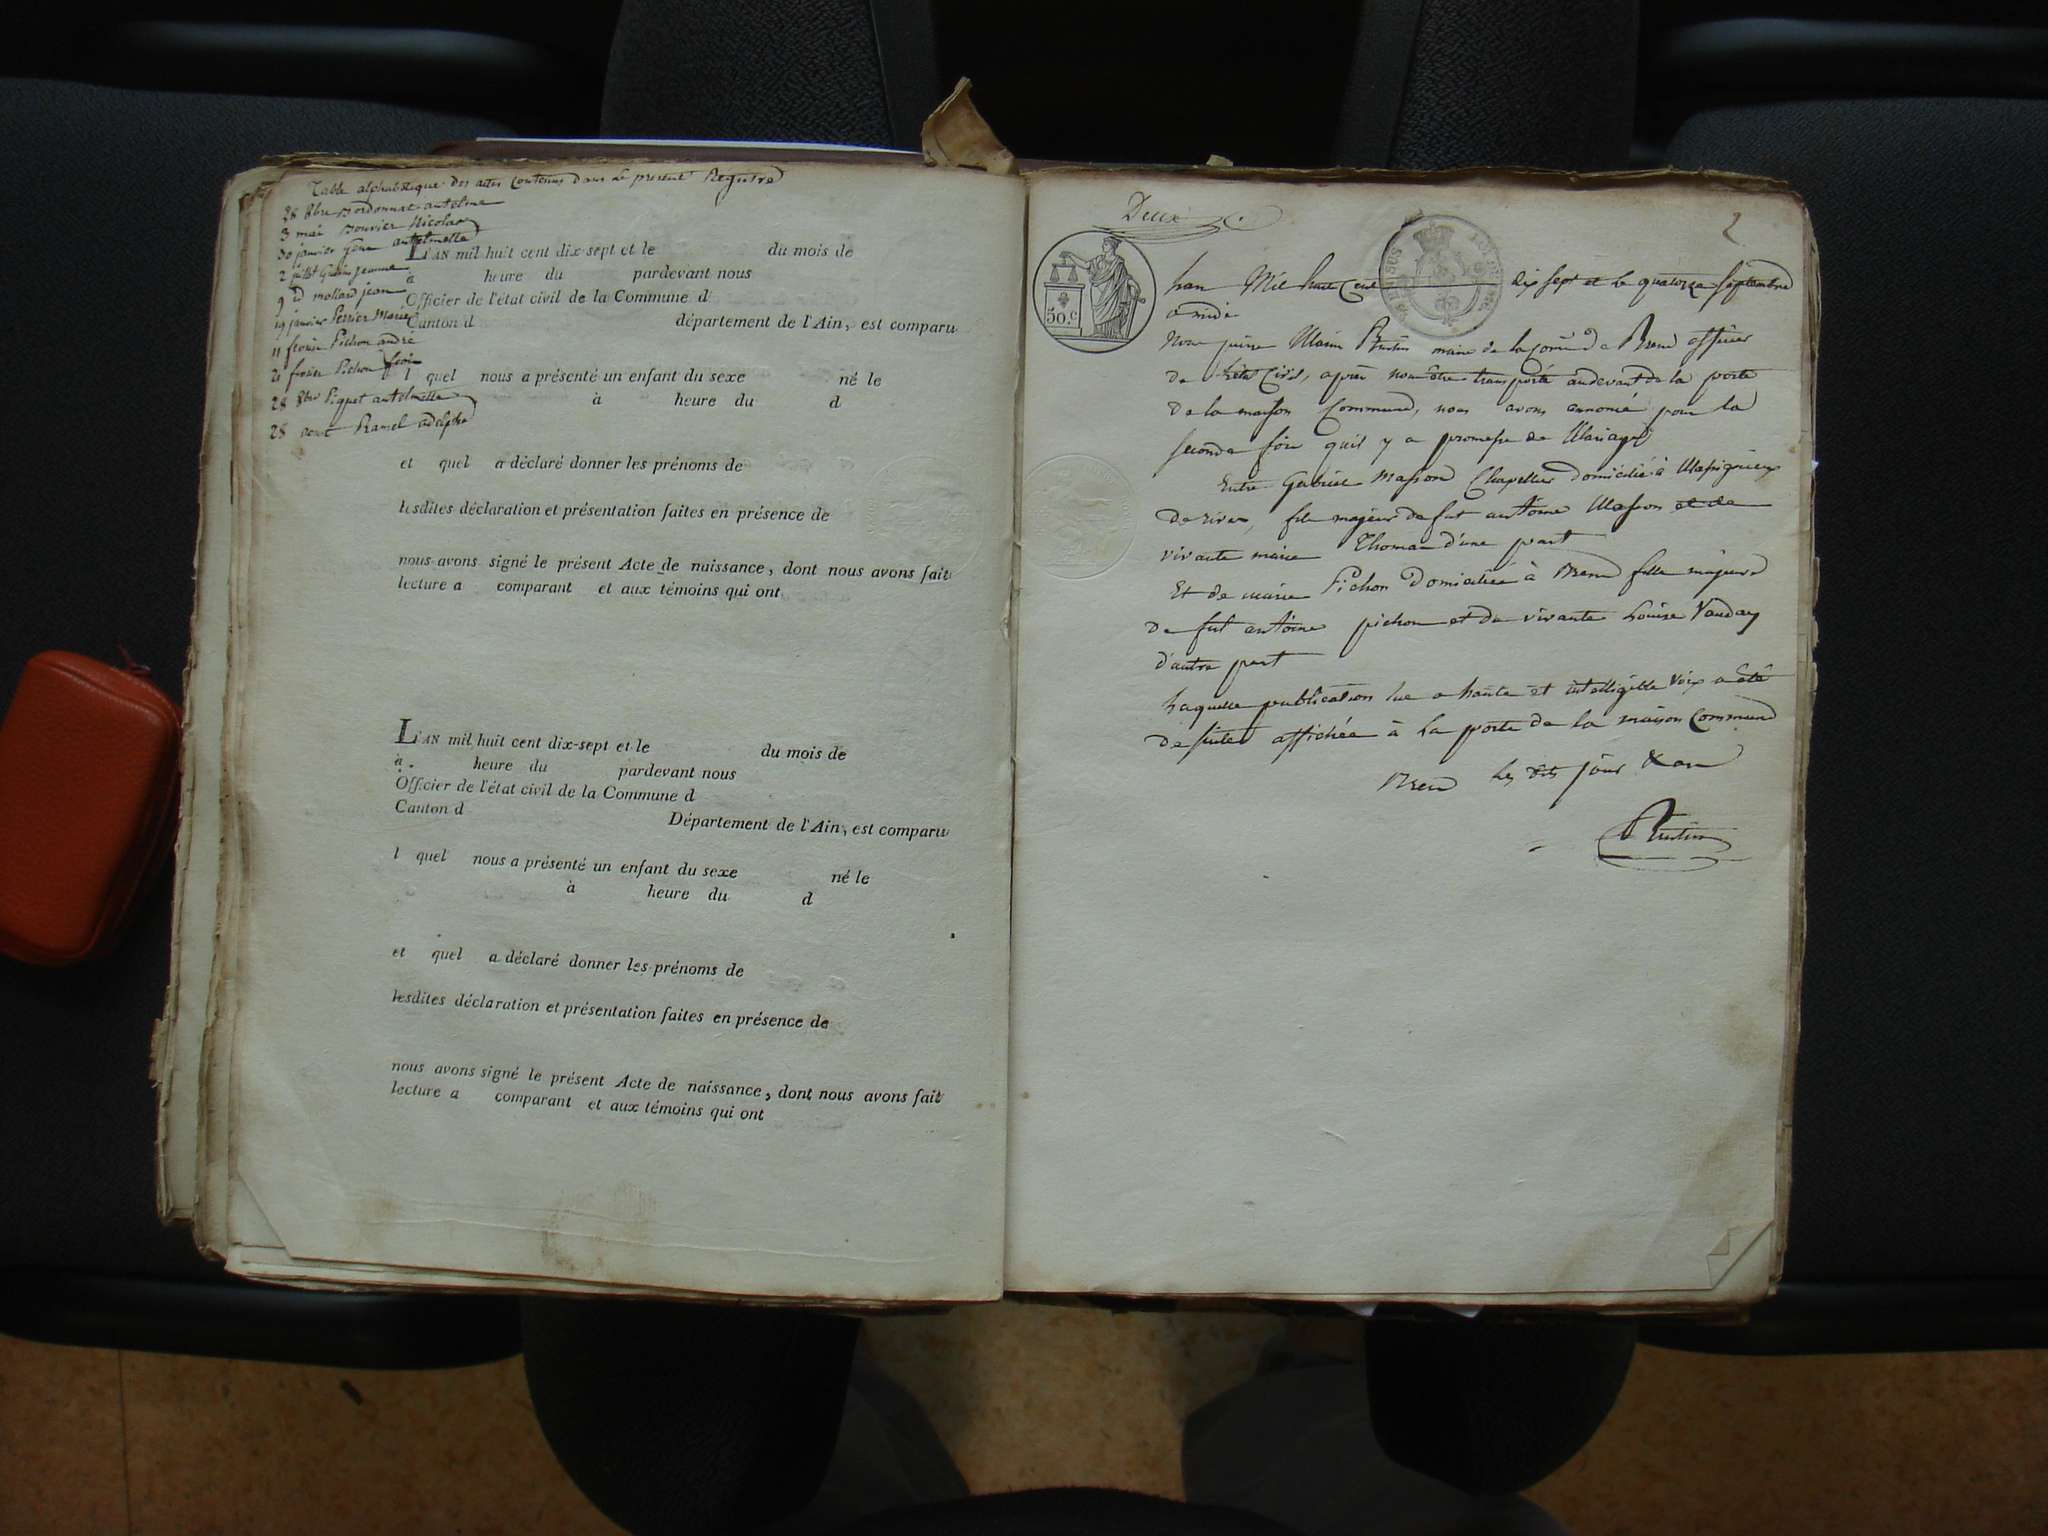 Table alphabetique des actes contenus dans le present Registre
28 8bre Bordonnat antelme
3 mai Bouvier Nicolas
30 janvier antelmette
2 jeanne
9 id mollard jean
19 janvier Perrier Marie
11 Pichon andré
21 Pichon
28 8bre Piquet antelmette
28 aout Ramel adelphe
L'AN mil huit cent dix-sept et le du mois de
à heure du pardevant nous
Officier de l'état civil de la Commune d
Canton d département de l'Ain, est comparu
l quel nous a présenté un enfant du sexe né le
à heure du d
et quel a déclaré donner les prénoms de
lesdites déclaration et présentation faites en présence de
nous avons signé le présent Acte de naissance, dont nous avons fait
lecture a comparant et aux témoins qui ont
L'AN mil huit cent dix-sept et le du mois de
à heure du pardevant nous
Officier de l'état civil de la Commune d
Canton d Département de l'Ain, est comparu
l quel nous a présenté un enfant du sexe né le
à heure du d
et quel a déclaré donner les prénoms de
lesdites déclaration et présentation faites en présence de
nous avons signé le présent Acte de naissance, dont nous avons fait
lecture a comparant et aux témoins qui ont
Deux
2
50.c
Lan Mil huit Cent dix sept et le quatorze septembre
a midi
Nous maire de la de Bren officier
de letat Civil, apres nous etre transporté audevant de la porte
de la maison Commune, nous avons annoncé pour la
seconde fois quil y a promesse de Mariage
Entre Gabriel Masson Chapellier domicilié à Massignieux
de rives, fils majeur de fut antoine Masson et de
vivante marie Thomas d'une part
Et de marie Pichon domiciliée à Bren fille majeure
de fut antoine pichon et de vivante Louise Vauday
d'autre part
Laquelle publication lue a haute et intelligible voix a été
de suite affichée à la porte de la maison Commune
Bren les dits jour & an